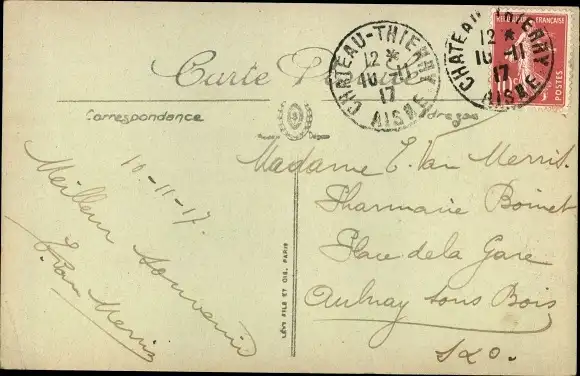 Carte Postale
CHATEAU-THIERRY
12 *
10-11
17
AISNE
CHATEAU-THIERRY
12 *
10-11
17
AISNE
REPUBLIQUE FRANÇAISE
POSTES
Correspondance
Adresse
10-11-17.
Meilleur souvenir
E. Van Merris
Madame E. Van Merris.
Pharmacie Boinet
Place de la Gare
Aulnay sous Bois
S & O.
LÉVY FILS ET CIE, PARIS